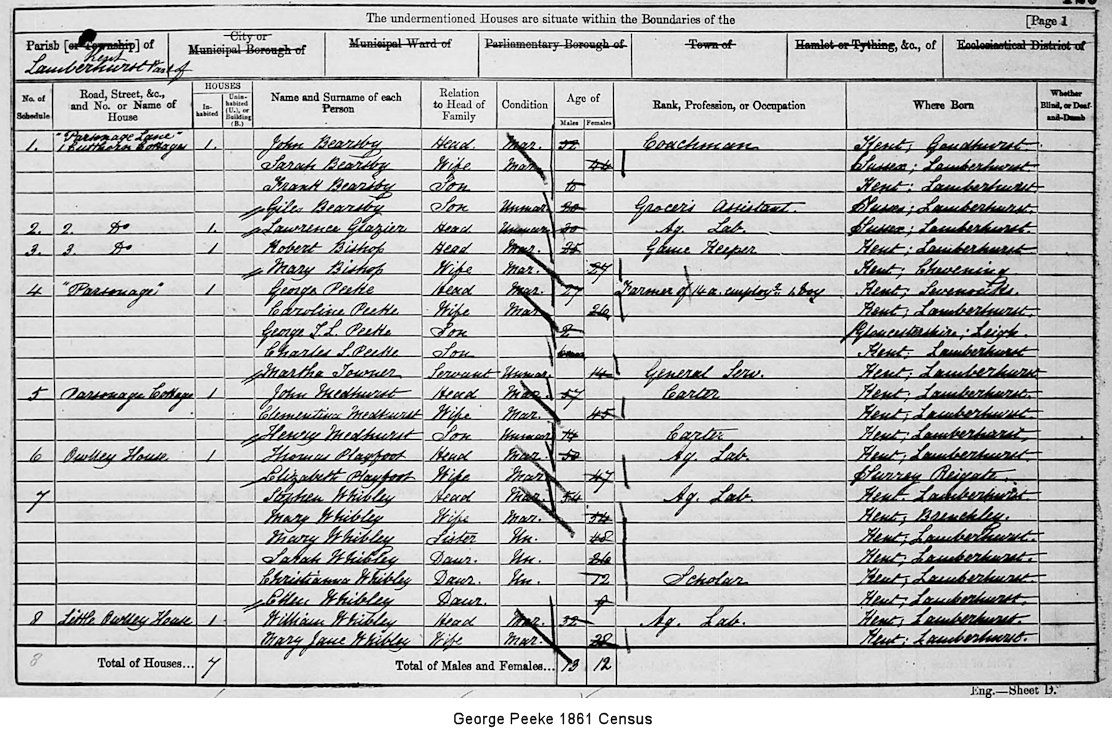 The undermentioned Houses are situate within the Boundaries of the [Page 1
Parish [or Township] of City or Municipal Borough of Municipal Ward of Parliamentary Borough of Town of Hamlet or Tything, &c., of Ecclesiastical District of
Kent
Lamberhurst Part of
No. of Schedule Road, Street, &c., and No. or Name of House HOUSES Inhabited Uninhabited (U.), or Building (B.) Name and Surname of each Person Relation to Head of Family Condition Age of Males Females Rank, Profession, or Occupation Where Born Whether Blind, or Deaf-and-Dumb
"Parsonage Lane"
1. 1 Cottages 1. John Bearsby Head Mar. Coachman Kent; Goudhurst
Sarah Bearsby Wife Mar. 44 Sussex; Lamberhurst
Frank Bearsby Son Kent; Lamberhurst
Giles Bearsby Son Unmar. 20 Grocer's Assistant. Sussex; Lamberhurst.
2. 2. Do 1. Lawrence Glazier Head Unmar. Ag. Lab. Sussex; Lamberhurst
3. 3. Do 1 Robert Bishop Head Mar. Game Keeper Kent; Lamberhurst
Mary Bishop Wife Mar. 27 Kent; Chevening
4 "Parsonage" 1 George Peeke Head Mar. 27 Farmer of 14 a. employg 1 boy Kent; Sevenoaks.
Caroline Peeke Wife Mar. 26 Kent; Lamberhurst.
George T. L. Peeke Son 2 Gloucestershire; Leigh
Charles S. Peeke Son Kent; Lamberhurst
Martha Towner Servant Unmar. 14 General Serv. Kent; Lamberhurst
5 Parsonage Cottage 1 John Medhurst Head Mar. 57 Carter Kent; Lamberhurst.
Clementina Medhurst Wife Mar. 45 Kent; Lamberhurst.
Henry Medhurst Son Unmar. 14 Carter Kent; Lamberhurst.
6 Owlley House 1 Thomas Playfoot Head Mar. 50 Ag. Lab. Kent; Lamberhurst.
Elizabeth Playfoot Wife Mar. 47 Surrey Reigate
7 Stephen Whibley Head Mar. 54 Ag. Lab. Kent Lamberhurst
Mary Whibley Wife Mar. 54 Kent; Brenchley.
Mary Whibley Sister Un. 48 Kent; Lamberhurst.
Sarah Whibley Daur. Un. 26 Kent; Lamberhurst.
Christianna Whibley Daur. Un. 12 Scholar Kent; Lamberhurst
Ellen Whibley Daur. 9 Kent; Lamberhurst.
8 Little Owlley House 1 William Whibley Head Mar. 32 Ag. Lab. Kent; Lamberhurst
Mary Jane Whibley Wife Mar. 28 Kent; Lamberhurst.
8 Total of Houses... 7 Total of Males and Females... 13 12
Eng.—Sheet D.
George Peeke 1861 Census